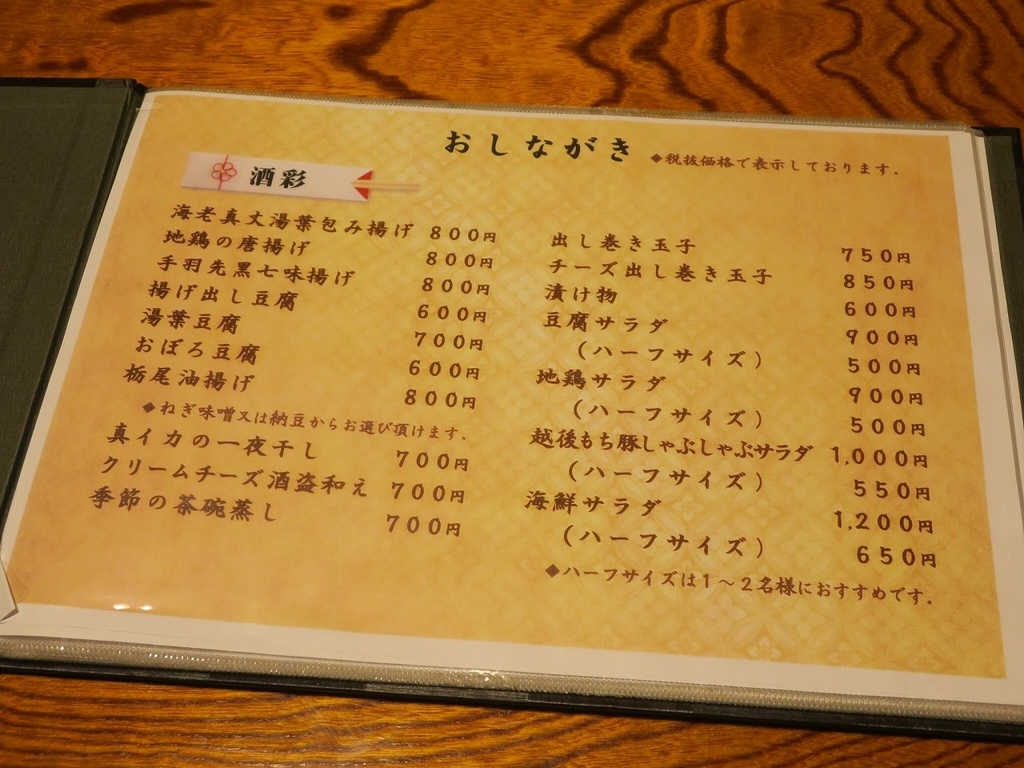 おしながき ◆税抜価格で表示しております.
酒彩
海老真丈湯葉包み揚げ 800円
地鶏の唐揚げ 800円
手羽先黒七味揚げ 800円
揚げ出し豆腐 600円
湯葉豆腐 700円
おぼろ豆腐 600円
栃尾油揚げ 800円
◆ねぎ味噌又は納豆からお選び頂けます.
真イカの一夜干し 700円
クリームチーズ酒盗和え 700円
季節の茶碗蒸し 700円
出し巻き玉子 750円
チーズ出し巻き玉子 850円
漬け物 600円
豆腐サラダ 900円
(ハーフサイズ) 500円
地鶏サラダ 900円
(ハーフサイズ) 500円
越後もち豚しゃぶしゃぶサラダ 1,000円
(ハーフサイズ) 550円
海鮮サラダ 1,200円
(ハーフサイズ) 650円
◆ハーフサイズは1～2名様におすすめです.